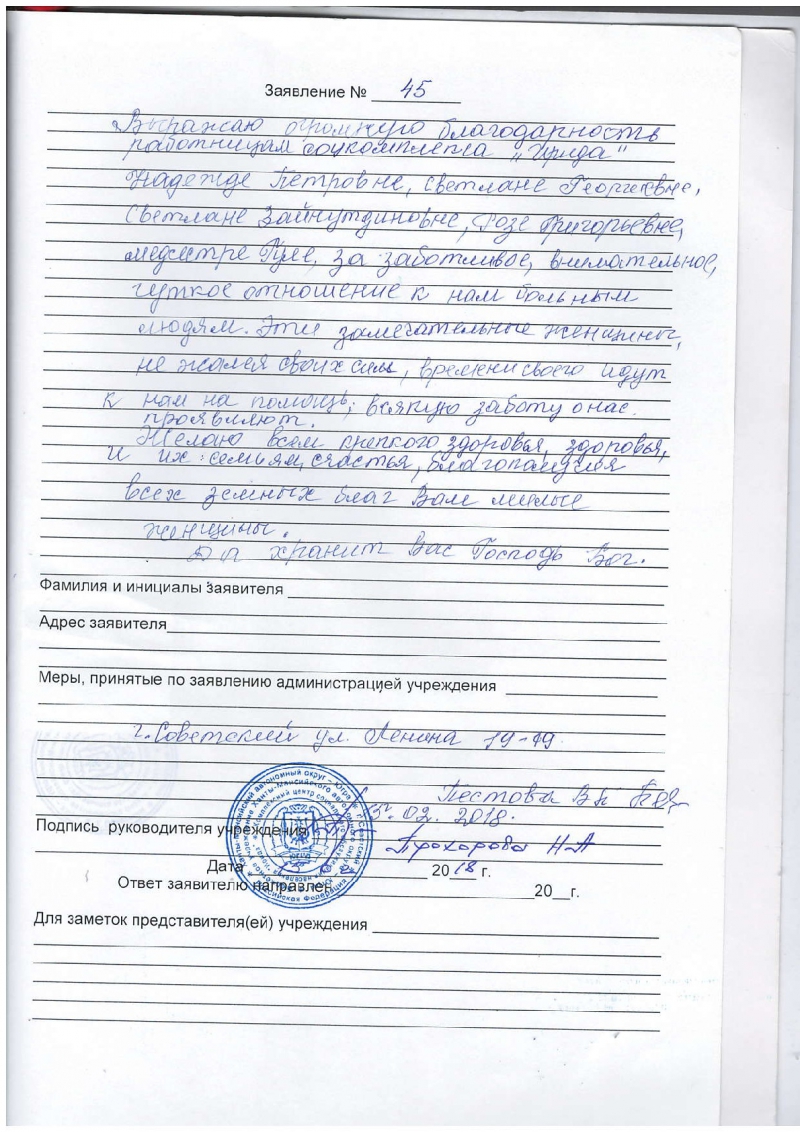 Заявление № 45
Выражаю огромную благодарность
работницам соцкомплекса „Ирида"
Надежде Петровне, Светлане Георгиевне,
Светлане Зайнутдиновне, Розе Григорьевне,
медсестре Гуле, за заботливое, внимательное,
чуткое отношение к нам больным
людям. Эти замечательные женщины,
не жалея своих сил, времени своего идут
к нам на помощь, всякую заботу о нас
проявляют.
Желаю всем крепкого здоровья, здоровья,
и их семьям, счастья, благополучия
всех земных благ Вам милые
женщины.
Да хранит Вас Господь Бог.
Фамилия и инициалы заявителя
Адрес заявителя
Меры, принятые по заявлению администрацией учреждения
г. Советский ул. Ленина 19-49
Пестова В.
02. 2018.
Подпись руководителя учреждения
Прохорова Н А
Дата 2018 г.
Ответ заявителю направлен 20 г.
Для заметок представителя(ей) учреждения